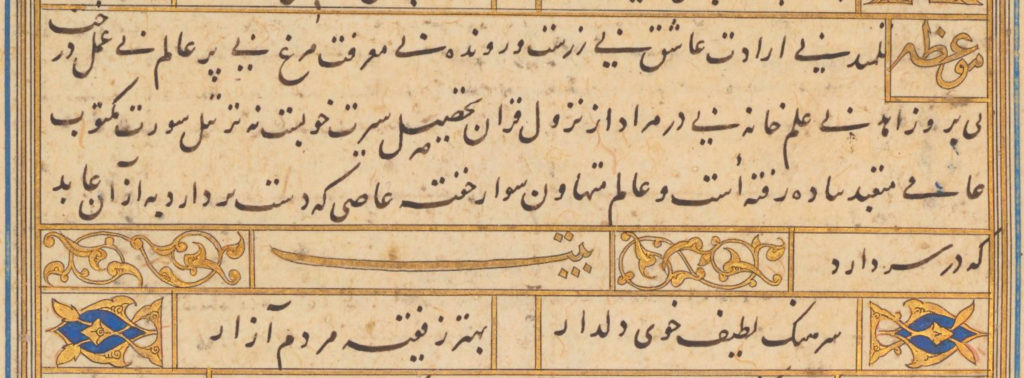 موعظه
تلمیذ بی ارادت عاشق بی زرست و رونده بی معرفت مرغ بی پر عالم بی عمل درخت
بی بر و زاهد بی علم خانه بی در مراد از نزول قران تحصیل سیرت خوبست نه ترتیل سورت مکتوب
عامی متعبد پیاده رفته است و عالم متهاون سوار خفته عاصی که دست بردارد به از آن عابد
که در سر دارد
بیت
سرهنگ لطیف خوی دلدار
بهتر ز فقیه مردم آزار